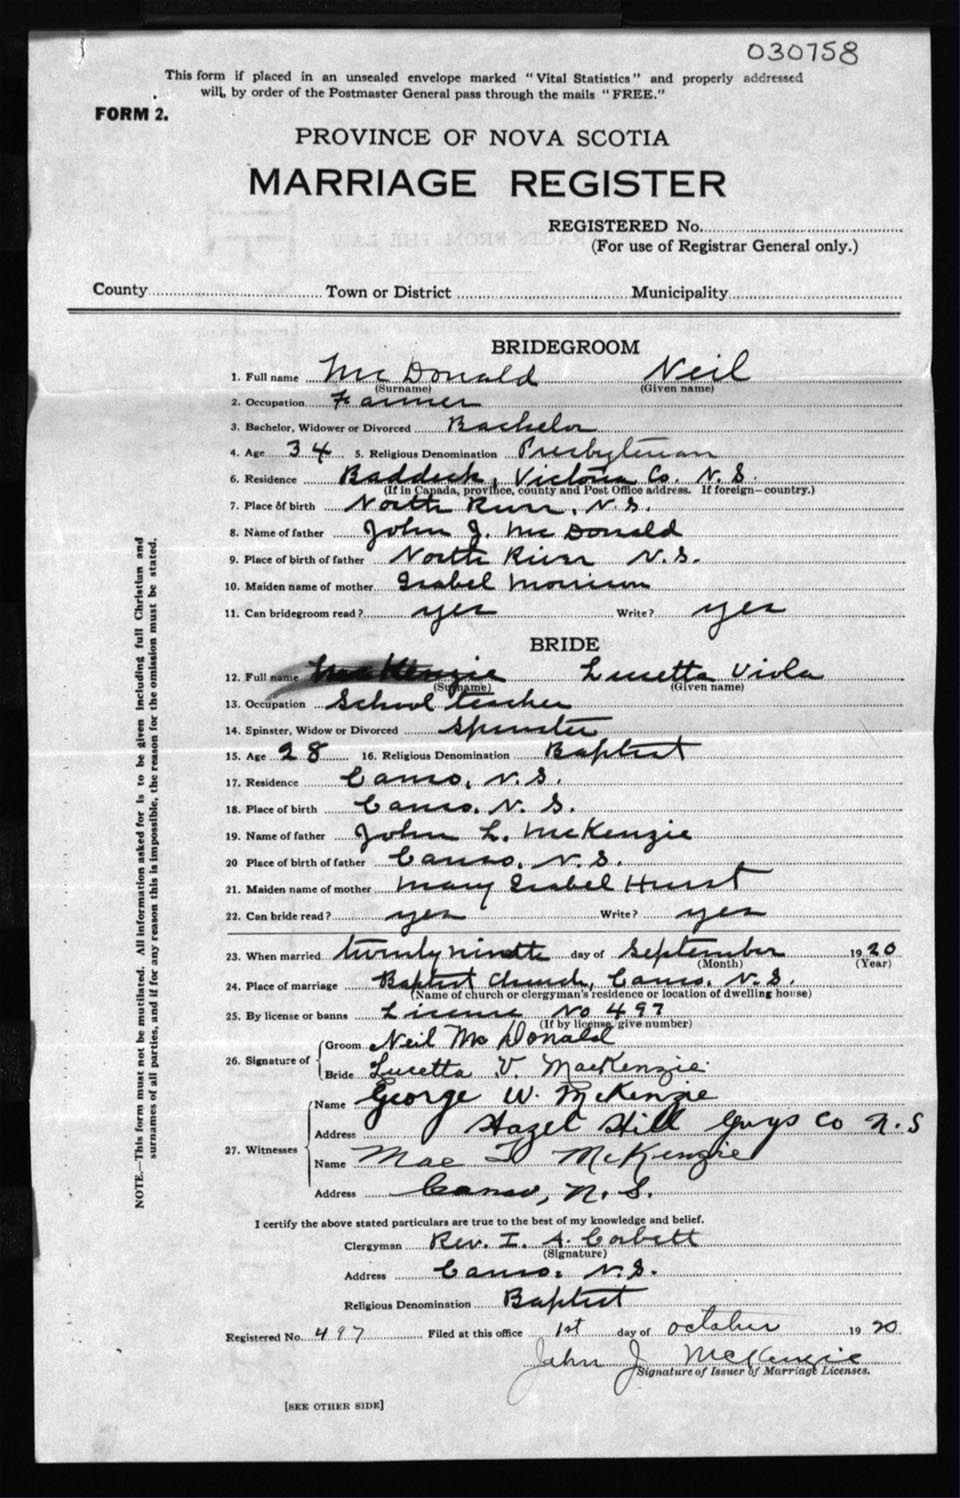 030758
This form if placed in an unsealed envelope marked "Vital Statistics" and properly addressed
will, by order of the Postmaster General pass through the mails "FREE."
FORM 2.
PROVINCE OF NOVA SCOTIA
MARRIAGE REGISTER
REGISTERED No.
(For use of Registrar General only.)
County Town or District Municipality
BRIDEGROOM
1. Full name McDonald Neil
(Surname) (Given name)
2. Occupation Farmer
3. Bachelor, Widower or Divorced Bachelor
4. Age 34 5. Religious Denomination Presbyterian
6. Residence Baddeck, Victoria Co. N. S.
(If in Canada, province, county and Post Office address. If foreign—country.)
7. Place of birth North River, N. S.
8. Name of father John J. McDonald
9. Place of birth of father North River N. S.
10. Maiden name of mother Isabel Morrison
11. Can bridegroom read? yes Write? yes
BRIDE
12. Full name MacKenzie Lucetta Viola
(Surname) (Given name)
13. Occupation School teacher
14. Spinster, Widow or Divorced Spinster
15. Age 28 16. Religious Denomination Baptist
17. Residence Canso, N. S.
18. Place of birth Canso, N. S.
19. Name of father John L. McKenzie
20 Place of birth of father Canso, N. S.
21. Maiden name of mother Mary Isabel Hurst
22. Can bride read? yes Write? yes
23. When married twenty ninth day of September 1920
(Month) (Year)
24. Place of marriage Baptist Church, Canso, N. S.
(Name of church or clergyman's residence or location of dwelling house)
25. By license or banns License No 497
(If by license, give number)
26. Signature of Groom Neil McDonald
Bride Lucetta V. MacKenzie
27. Witnesses Name George W. McKenzie
Address Hazel Hill Guys Co N. S
Name Mae McKenzie
Address Canso, N. S.
I certify the above stated particulars are true to the best of my knowledge and belief.
Clergyman Rev. I. A. Corbett
(Signature)
Address Canso, N. S.
Religious Denomination Baptist
Registered No. 497 Filed at this office 1st day of October 1920
John J McKenzie
Signature of Issuer of Marriage Licenses.
[SEE OTHER SIDE]
NOTE.—This form must not be mutilated. All information asked for is to be given including full Christian and
surnames of all parties, and if for any reason this is impossible, the reason for the omission must be stated.